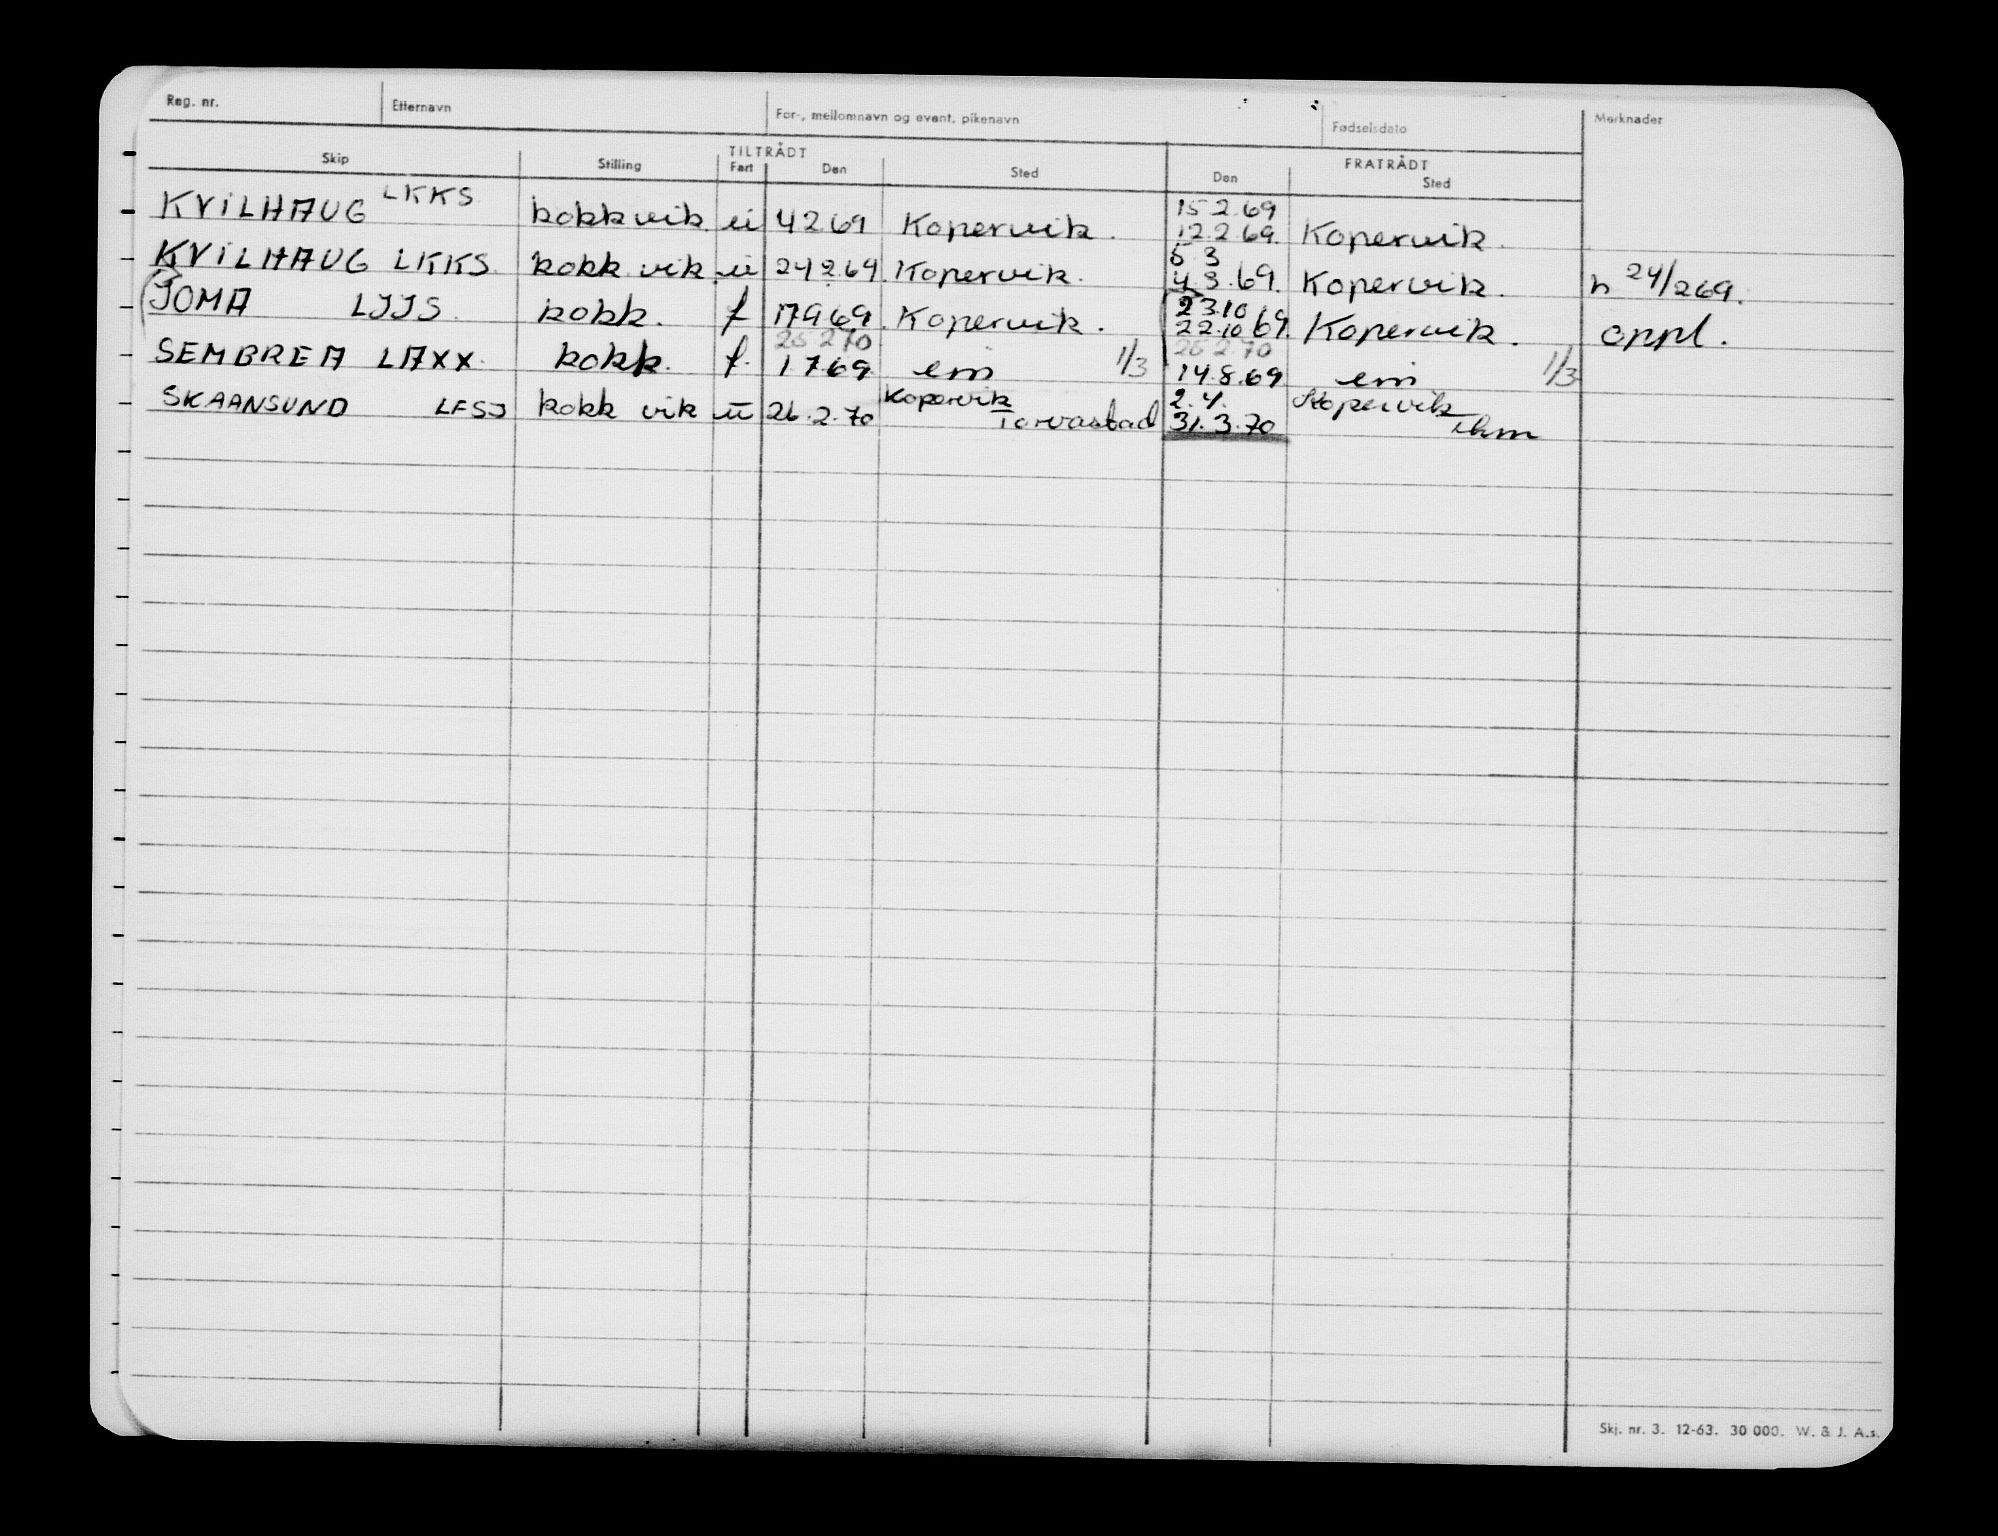 Reg. nr. Etternavn For-, mellomnavn og event. pikenavn Fødselsdato Merknader
TILTRÅDT FRATRÅDT
Skip Stilling Fart Den Sted Den Sted
KVILHAUG LKKS kokk vik. ui 4 2.69 Kopervik. 15 2.69 12.2 69. Kopervik.
KVILHAUG LKKS. kokk vik ui 24 2.69. Kopervik. 5 3 4.3.69. Kopervik. h 24/2 69.
(JOMA LJJS. kokk. f 17 9 69. Kopervik. (23.10 69 22.10 69. Kopervik. oppl.
SEMBREA LAXX. kokk. f. 25 2 70 1.7.69 em 1/3 25 2.70 14.8.69 em 1/3
SKAANSUND LFSJ kokk vik u 26.2.70 Kopervik Torvastad 2.4. 31.3.70 Kopervik Thm
Skj. nr. 3. 12-63. 30 000. W. & J. A.s.